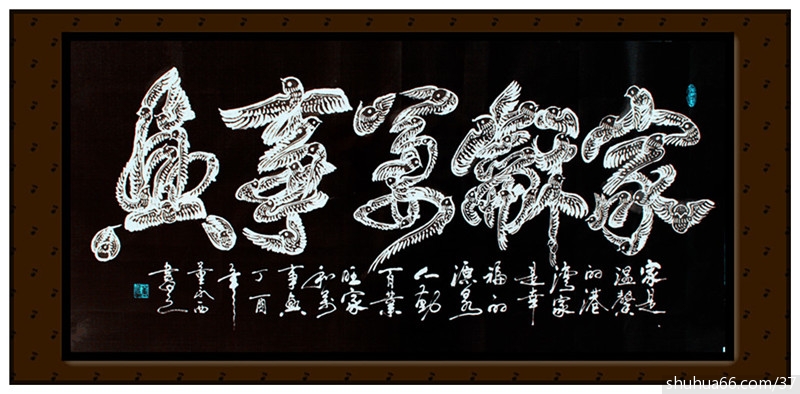 家龢萬事興
家是
温馨
的港
灣家
是幸
福的
源泉
人勤
百業
旺家
和萬
事興
丁酉
年
董永西
shuhua66.com/37